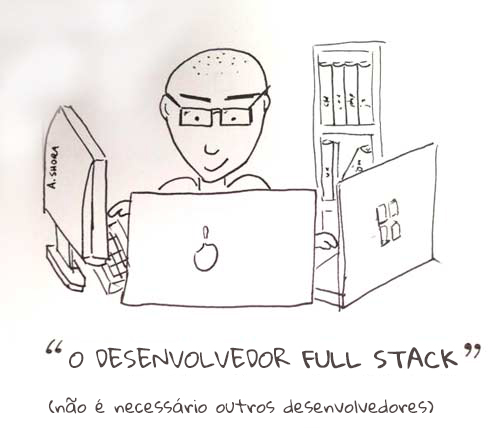 A. SHORA
“O DESENVOLVEDOR FULL STACK”
(não é necessário outros desenvolvedores)